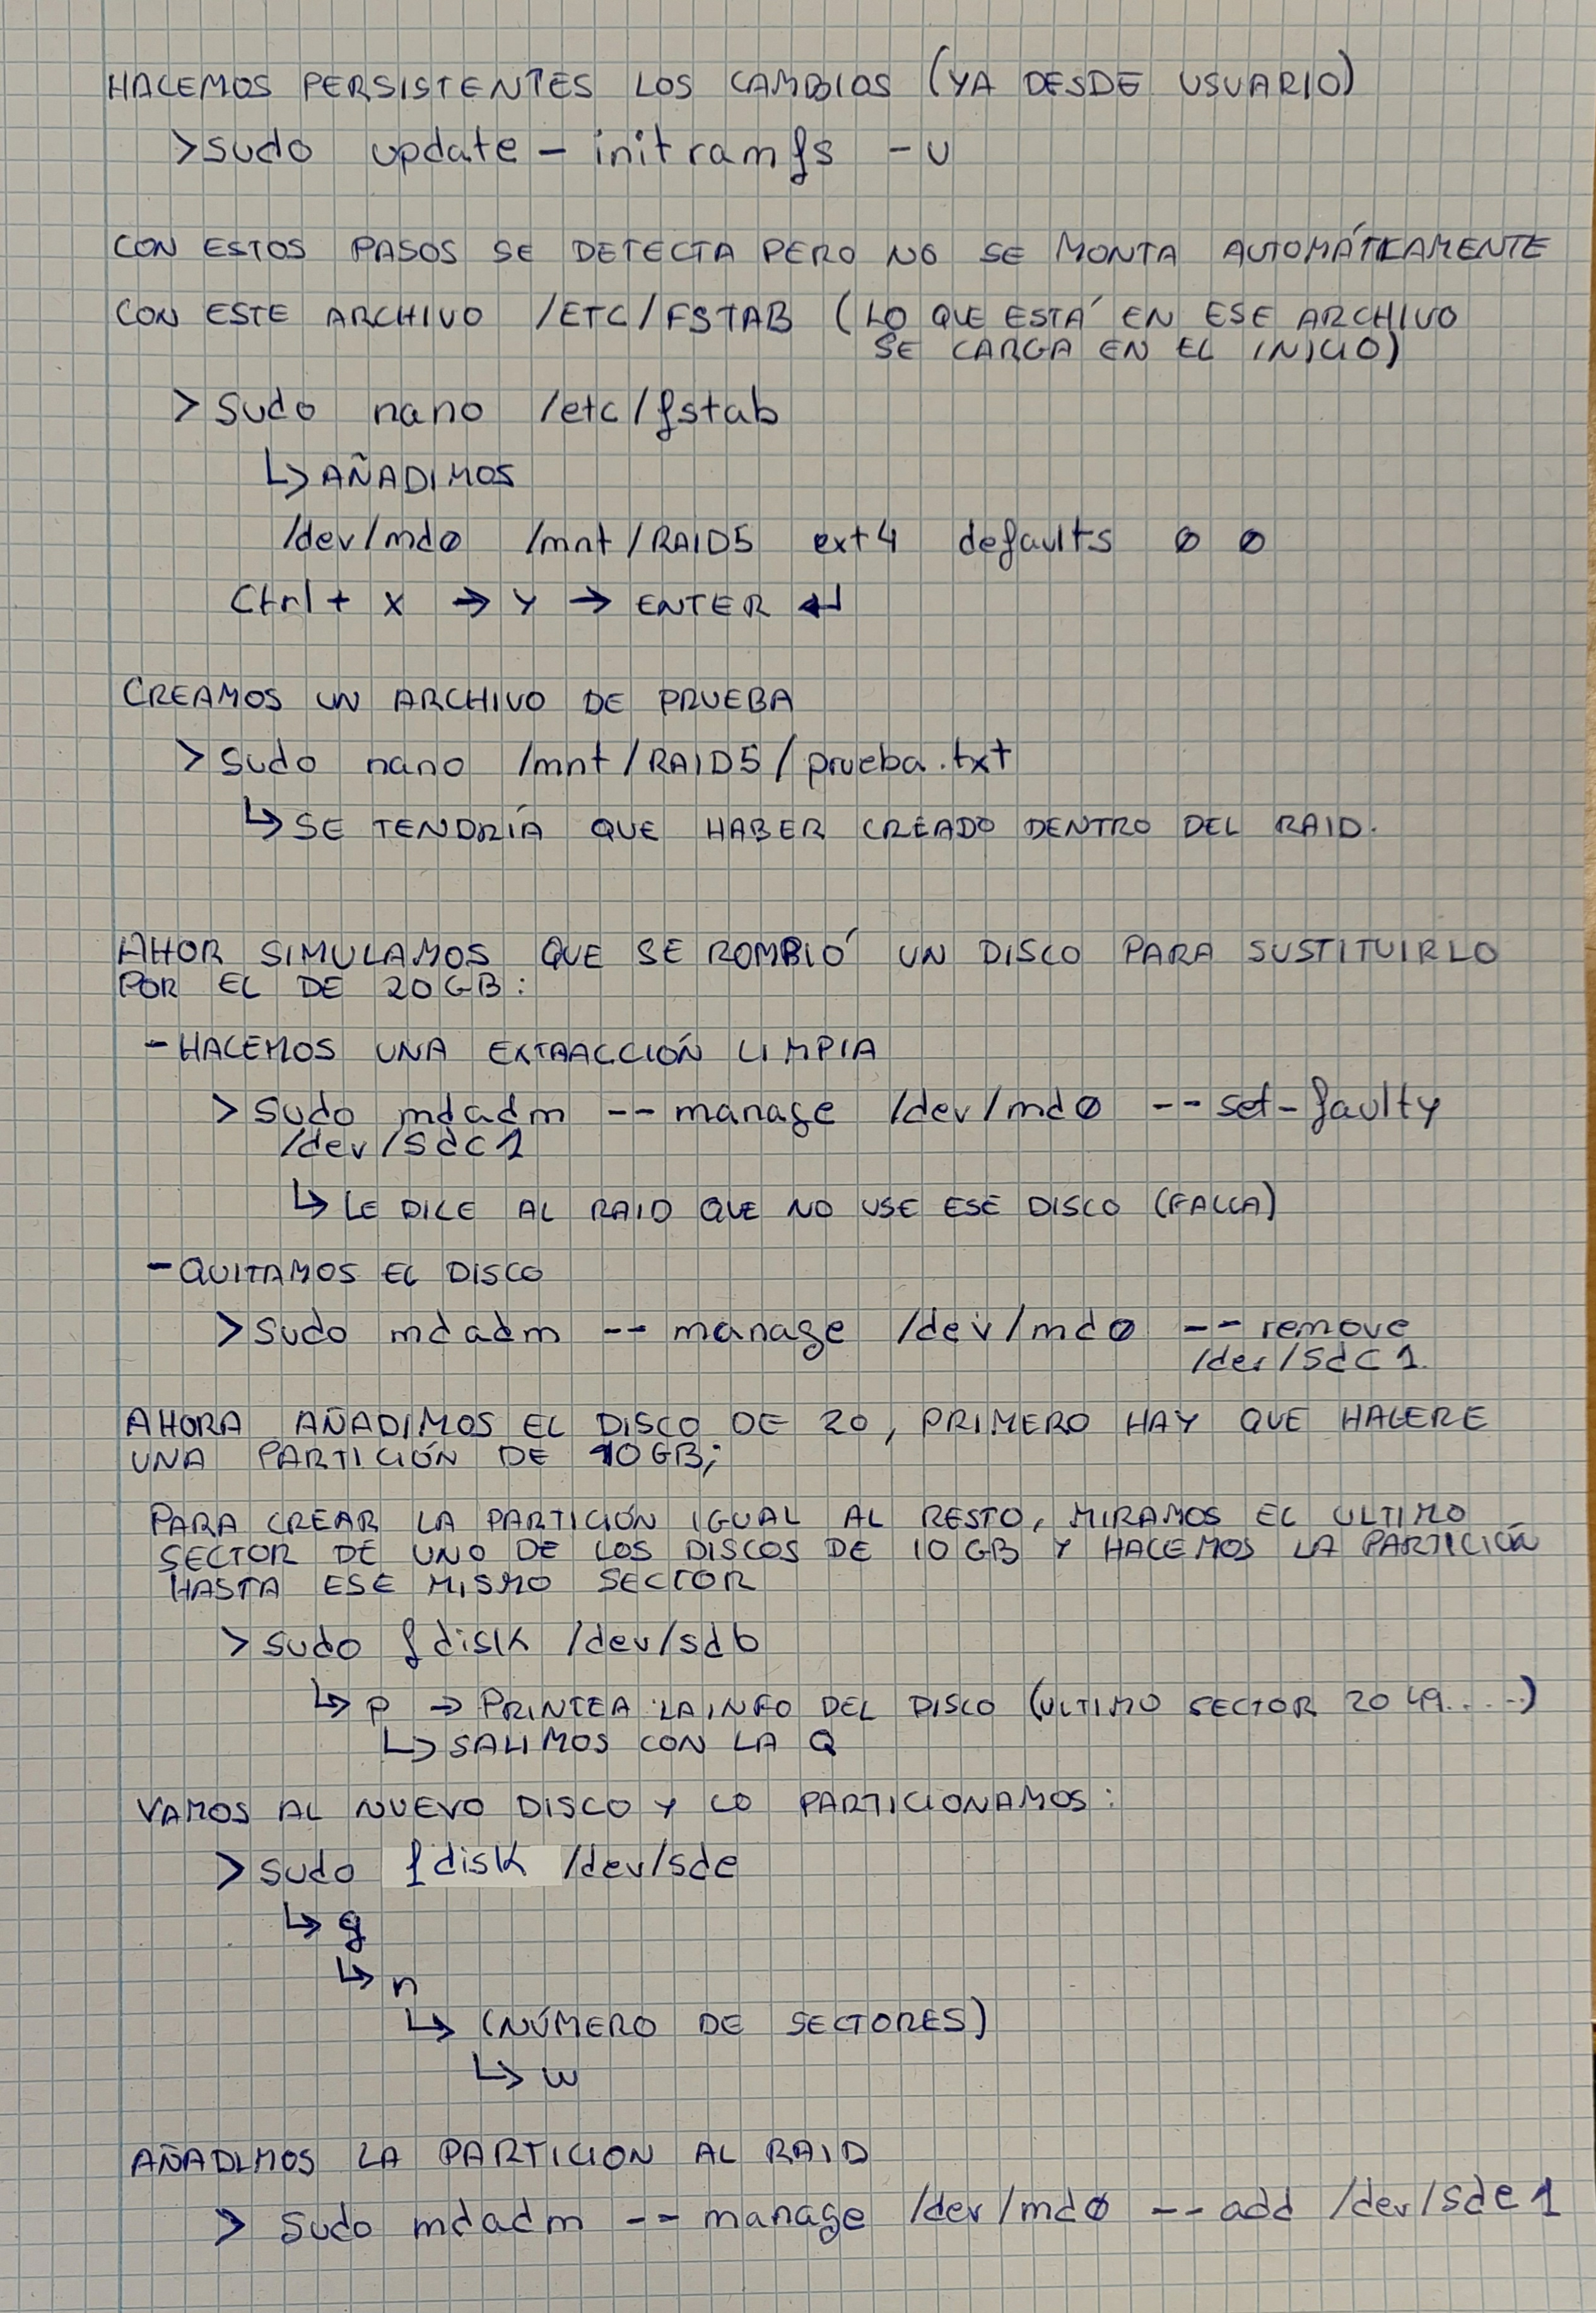 HACEMOS PERSISTENTES LOS CAMBIOS (YA DESDE USUARIO)
> sudo update - initramfs -u
CON ESTOS PASOS SE DETECTA PERO NO SE MONTA AUTOMÁTICAMENTE
CON ESTE ARCHIVO /ETC/FSTAB (LO QUE ESTÁ EN ESE ARCHIVO
SE CARGA EN EL INICIO)
> sudo nano /etc/fstab
↳ AÑADIMOS
/dev/md0 /mnt/RAID5 ext4 defaults 0 0
Ctrl + X → Y → ENTER ↵
CREAMOS UN ARCHIVO DE PRUEBA
> sudo nano /mnt/RAID5/prueba.txt
↳ SE TENDRÍA QUE HABER CREADO DENTRO DEL RAID.
AHOR SIMULAMOS QUE SE ROMPIÓ UN DISCO PARA SUSTITUIRLO
POR EL DE 20GB:
- HACEMOS UNA EXTRACCIÓN LIMPIA
> sudo mdadm --manage /dev/md0 --set-faulty
/dev/sdc1
↳ LE DICE AL RAID QUE NO USE ESE DISCO (FALLA)
- QUITAMOS EL DISCO
> sudo mdadm --manage /dev/md0 --remove
/dev/sdc1
AHORA AÑADIMOS EL DISCO DE 20, PRIMERO HAY QUE HACERE
UNA PARTICIÓN DE 10GB;
PARA CREAR LA PARTICIÓN IGUAL AL RESTO, MIRAMOS EL ULTIMO
SECTOR DE UNO DE LOS DISCOS DE 10GB Y HACEMOS LA PARTICIÓN
HASTA ESE MISMO SECTOR
> sudo fdisk /dev/sdb
↳ p → PRINTEA LA INFO DEL DISCO (ULTIMO SECTOR 2049.....)
↳ SALIMOS CON LA Q
VAMOS AL NUEVO DISCO Y LO PARTICIONAMOS:
> sudo fdisk /dev/sde
↳ g
↳ n
↳ (NÚMERO DE SECTORES)
↳ w
AÑADIMOS LA PARTICION AL RAID
> sudo mdadm --manage /dev/md0 --add /dev/sde1